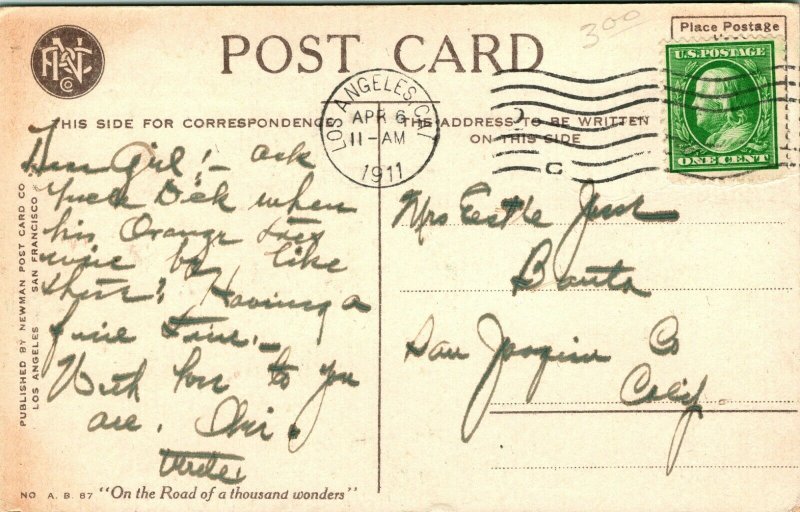 300
Place Postage
U.S. POSTAGE
ONE CENT
POST CARD
LOS ANGELES, CAL
APR 6
11-AM
1911
THIS SIDE FOR CORRESPONDENCE
THE ADDRESS TO BE WRITTEN
ON THIS SIDE
Dear Girl! - ask
Uncle Dick when
his Orange trees
will be like
these! Having a
fine time. -
With love to you
all.
Write.
Mrs
Banta
San Joaquin Co
Calif.
PUBLISHED BY NEWMAN POST CARD CO
LOS ANGELES SAN FRANCISCO
NO A. B. 87 "On the Road of a thousand wonders"